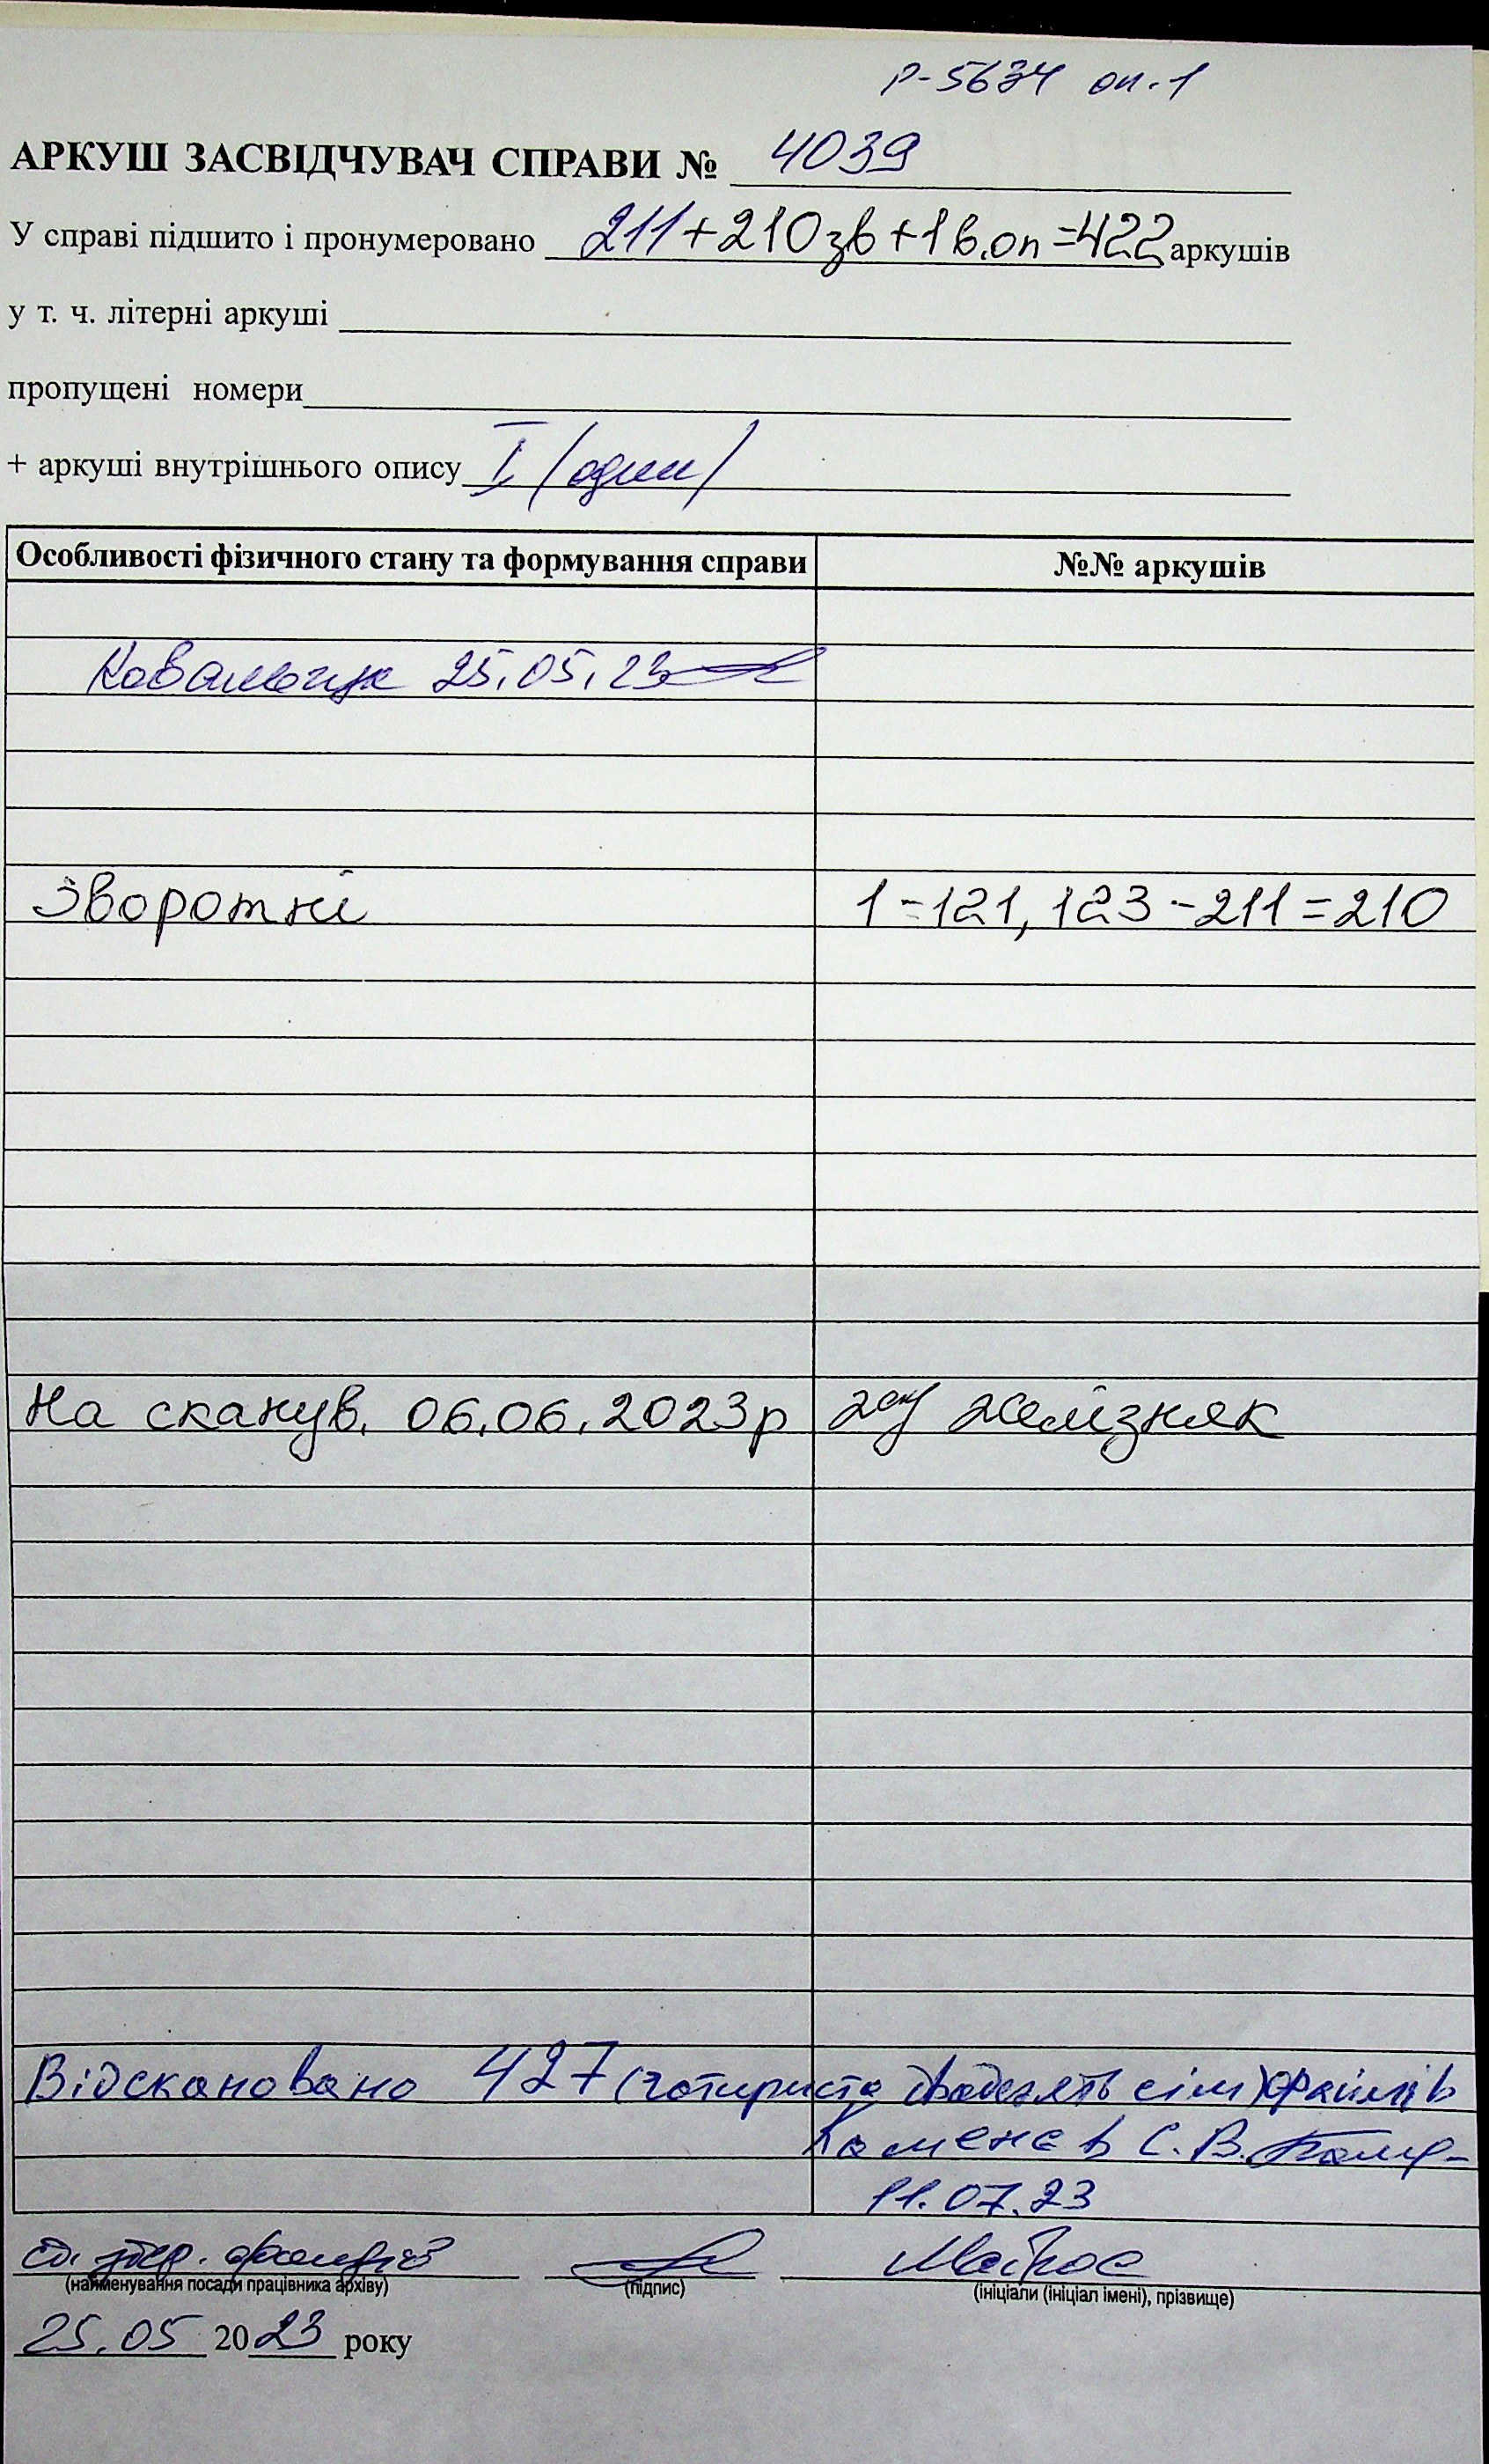 Р-5634 оп.1
АРКУШ ЗАСВІДЧУВАЧ СПРАВИ № 4039
У справі підшито і пронумеровано 211+210зв+1в.оп=422 аркушів
у т. ч. літерні аркуші
пропущені номери
+ аркуші внутрішнього опису I (один)
Особливості фізичного стану та формування справи №№ аркушів
25.05.23
Зворотні 1-121, 123-211=210
На сканув. 06.06.2023р Желізняк
Відскановано 427 (чотириста двадцять сім) файлів
Каменєв С.В.
11.07.23
ст. збер. фондів
(найменування посади працівника архіву) (підпис) (ініціали (ініціал імені), прізвище)
25.05 2023 року